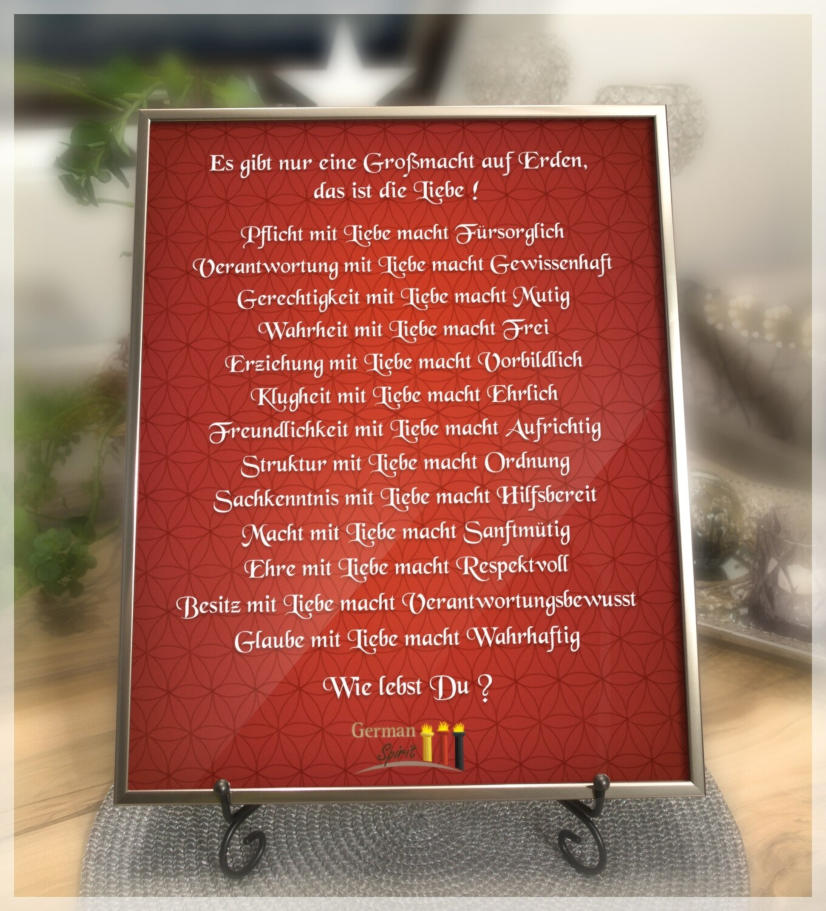 Es gibt nur eine Großmacht auf Erden,
das ist die Liebe !
Pflicht mit Liebe macht Fürsorglich
Verantwortung mit Liebe macht Gewissenhaft
Gerechtigkeit mit Liebe macht Mutig
Wahrheit mit Liebe macht Frei
Erziehung mit Liebe macht Vorbildlich
Klugheit mit Liebe macht Ehrlich
Freundlichkeit mit Liebe macht Aufrichtig
Struktur mit Liebe macht Ordnung
Sachkenntnis mit Liebe macht Hilfsbereit
Macht mit Liebe macht Sanftmütig
Ehre mit Liebe macht Respektvoll
Besitz mit Liebe macht Verantwortungsbewusst
Glaube mit Liebe macht Wahrhaftig
Wie lebst Du ?
German
Spirit